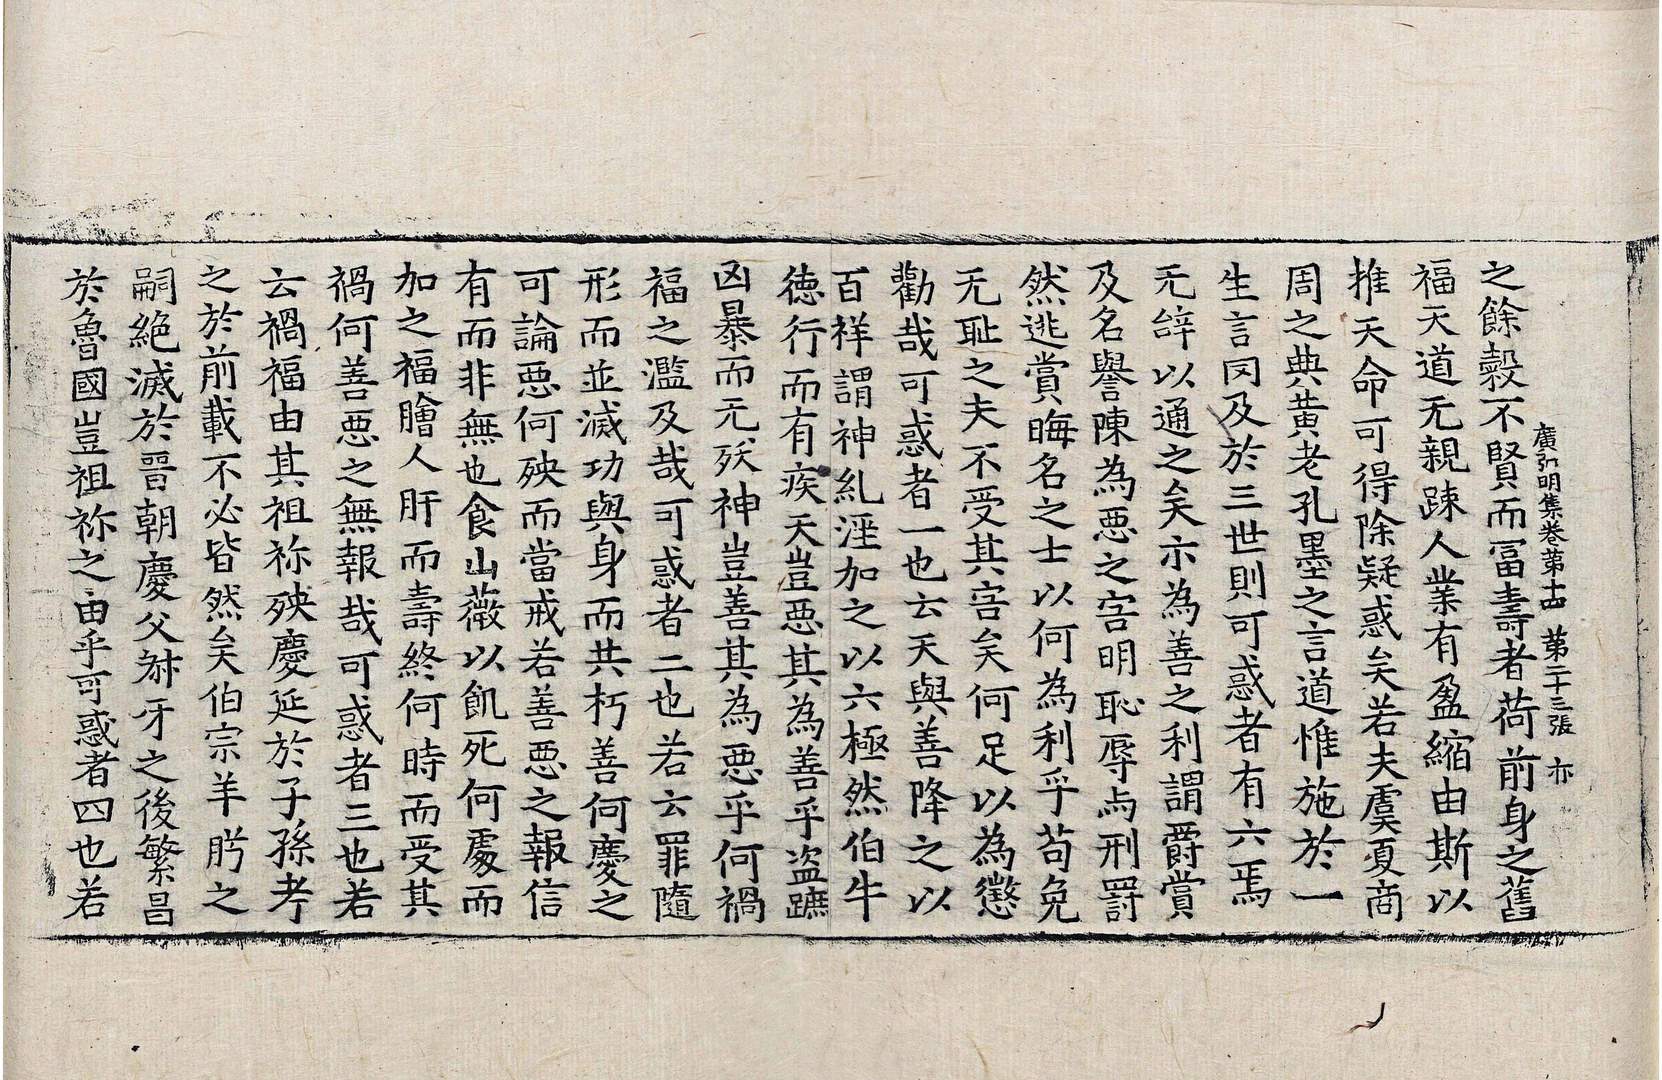 廣弘明集卷第十四 第二十三張 亦
之餘殺不賢而冨壽者荷前身之舊
福天道无親踈人業有盈縮由斯以
推天命可得除疑惑矣若夫虞夏商
周之典黃老孔墨之言道惟施於一
生言罔及於三世則可惑者有六焉
无辝以通之矣亦為善之利謂爵賞
及名譽陳為惡之害明恥辱与刑罸
然逃賞晦名之士以何為利乎苟免
无耻之夫不受其害矣何足以為懲
勸哉可惑者一也云天與善降之以
百祥謂神糺滛加之以六極然伯牛
徳行而有疾天豈惡其為善乎盗蹠
凶暴而无殀神豈善其為惡乎何禍
福之濫及哉可惑者二也若云罪隨
形而並滅功與身而共朽善何慶之
可論惡何殃而當戒若善惡之報信
有而非無也食山薇以飢死何處而
加之福膾人肝而壽終何時而受其
禍何善惡之無報哉可惑者三也若
云禍福由其祖祢殃慶延於子孫考
之於前載不必皆然矣伯宗羊肹之
嗣絕滅於晉朝慶父牙之後繁昌
於魯國豈祖祢之由乎可惑者四也若